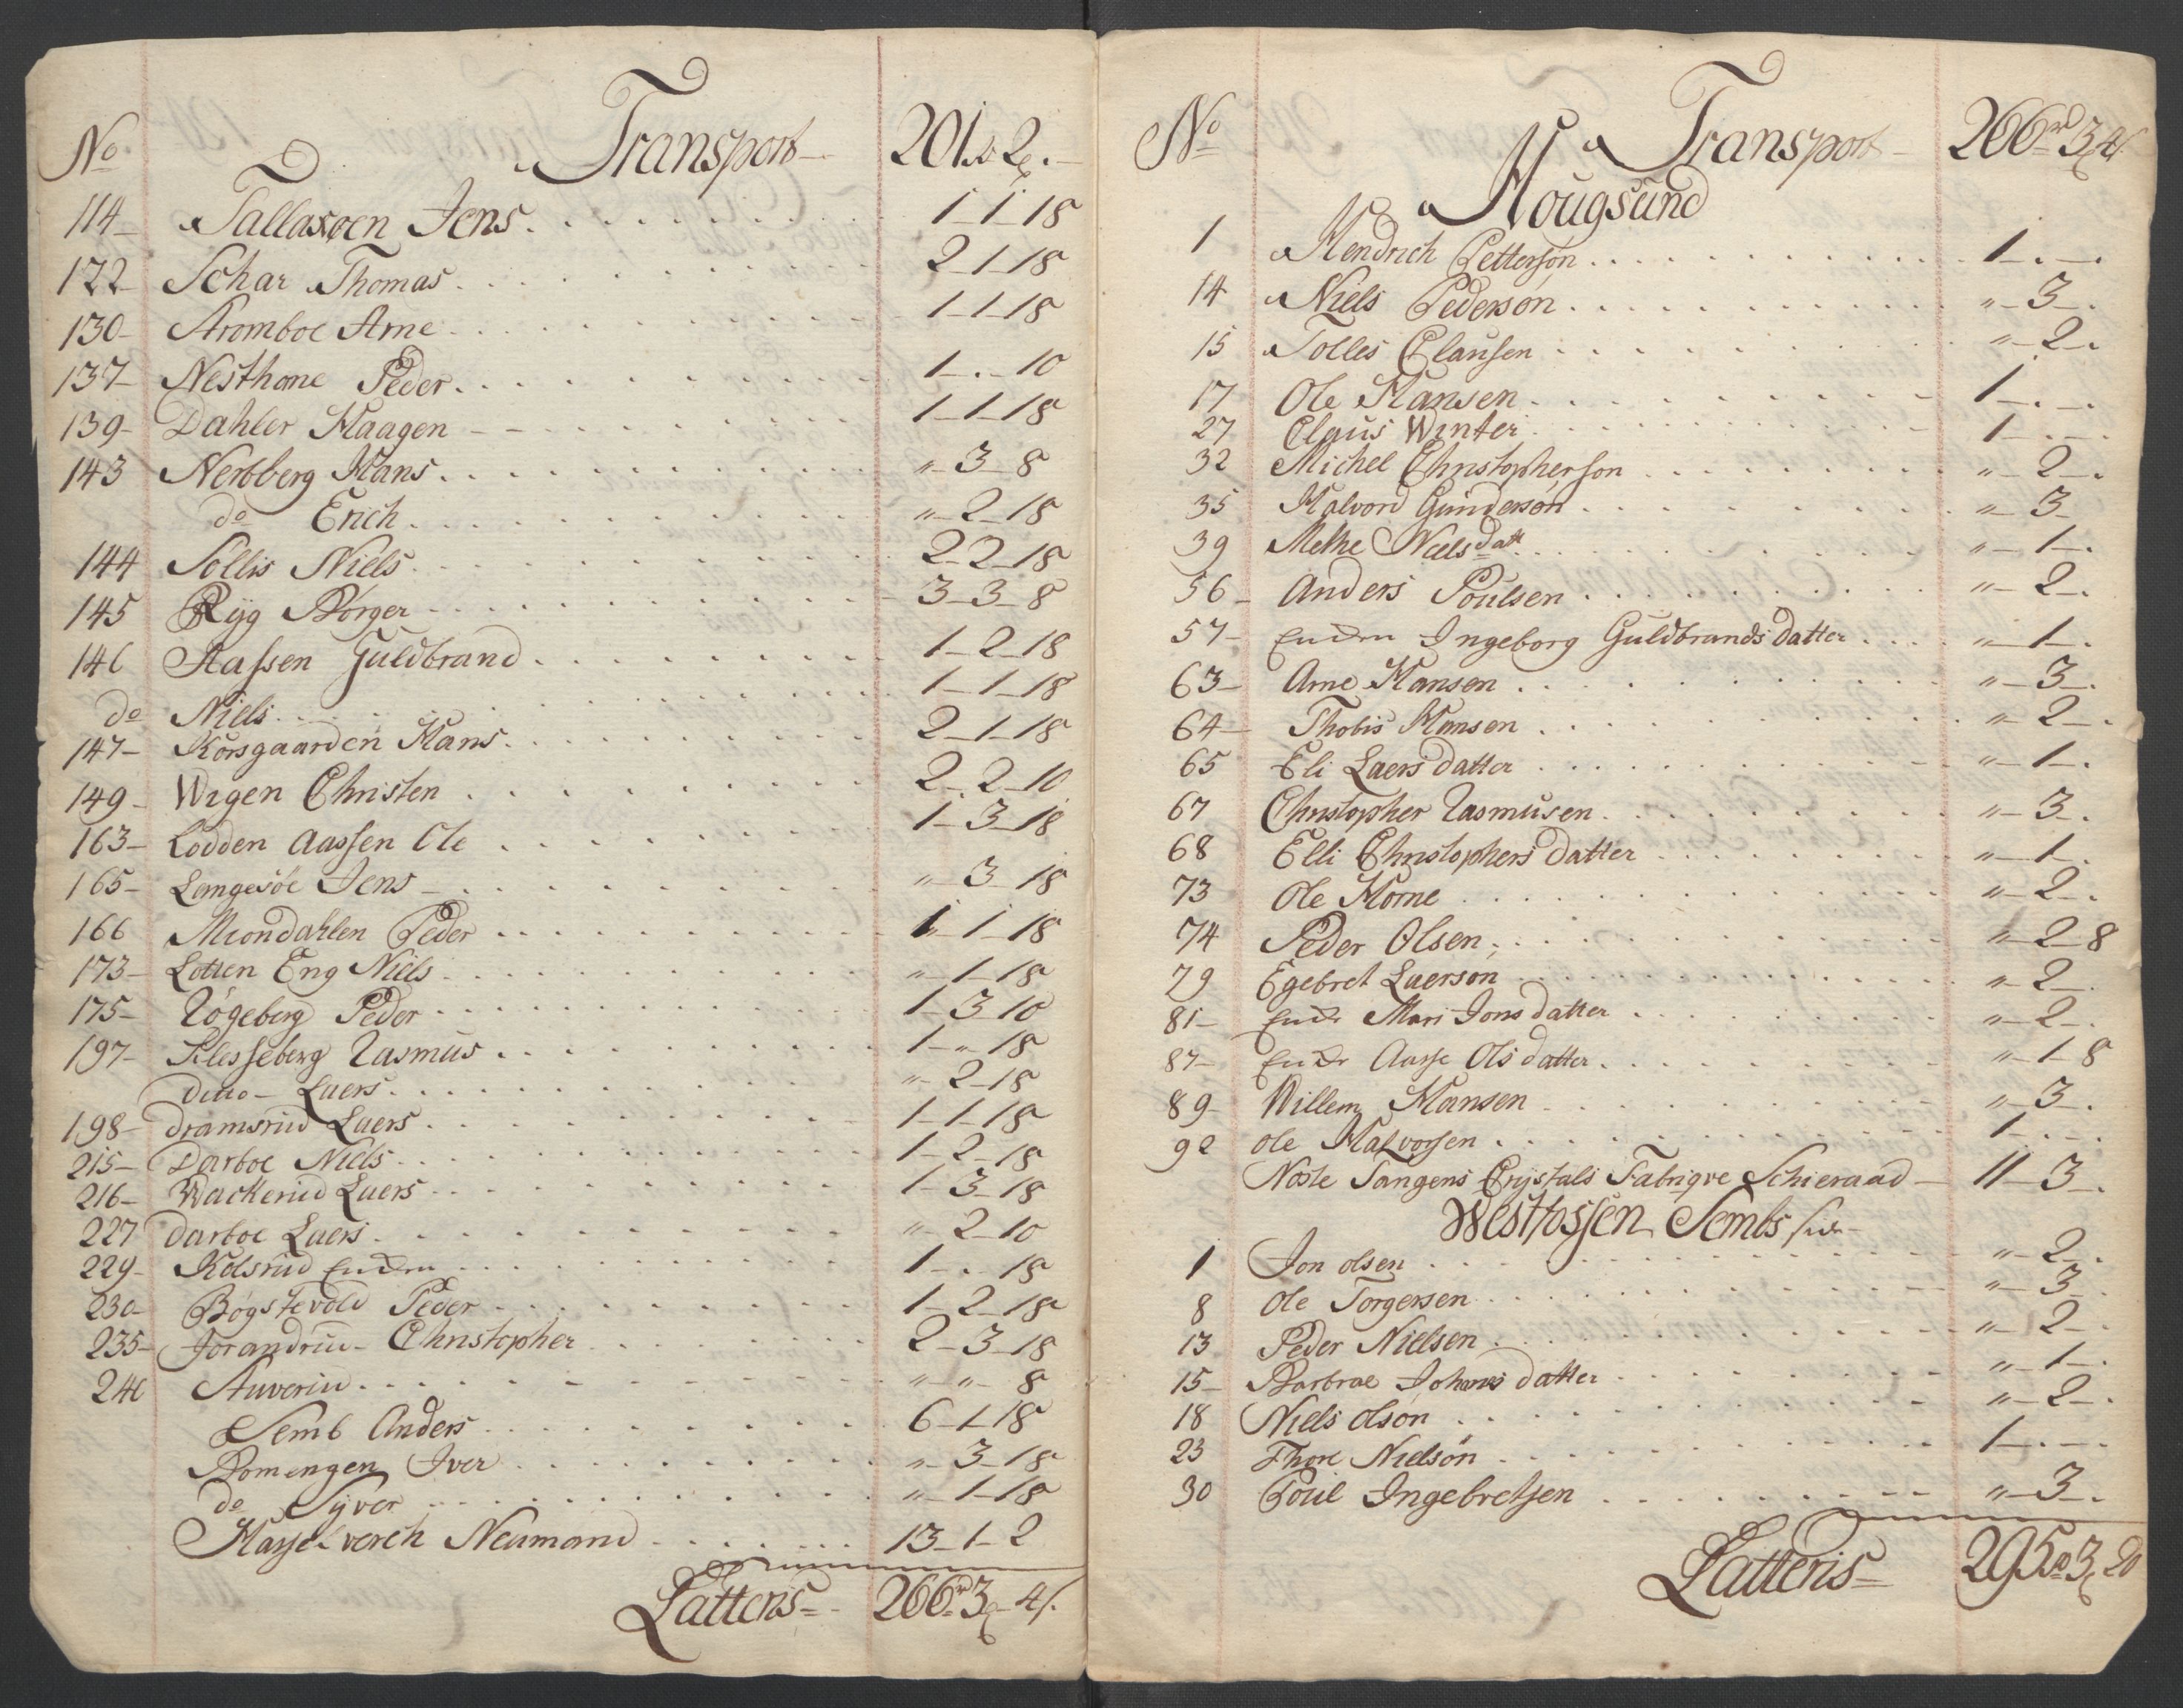 No Transport 201 2
114 Tallaxoen Jens 1-1-18
122 Schar Thomas 2-1-18
130 Stromboe Arne 1-1-18
137 Nesthone Peder 1-.-10
139 Dahler Haagen 1-1-18
143 Nerbberg Hans "-3-8
do Erich "-2-18
144 Sollis Niels 2-2-18
145 Ryg Børger 3-3-8
146 Aassen Guldbrand 1-2-18
do Niels 1-1-18
147 Korsgaarden Hans 2-1-18
149 Wigen Christen 2-2-10
163 Lodden Aassen Ole 1-3-18
165 Langesøe Jens "-3-18
166 Miondahlen Peder 1-1-18
173 Lotten Eng Niels "-1-18
175 Røgeberg Peder 1-3-10
197 Flesseberg Rasmus 1-"-18
ditto Laers "-2-18
198 Dramsrud Laers 1-1-18
215 Darboe Niels 1-2-18
216 Wackerud Laers 1-3-18
227 Darboe Laers "-2-10
229 Kolsrud Enken 1-.-18
230 Bøgstevold Peder 1-2-18
235 Jorandrud Christopher 2-3-18
240 Stuverud "-"-8
Semb Anders 6-1-18
Bomengen Iver "-3-18
do Syver "-1-18
Hassel verch Neumand 13-1-2
Latteris 266 3 4
No Transport 266 3 4
Hougsund
1 Hendrich Petterson 1-.-.
14 Niels Pederson "-3-.
15 Tolles Clausen "-2-.
17 Ole Hansen 1-.-.
27 Claus Winter 1-.-.
32 Michel Christopherson "-2-.
35 Halvord Gunderson "-3
39 Methe Niels datt "-1-.
56 Anders Poulsen "-2-.
57 Enken Ingeborg Guldbrands datter "-1-.
63 Arne Hansen "-3-.
64 Thobis Hansen "-2-.
65 Eli Laers datter "-1-.
67 Christopher Rasmusen "-3-.
68 Elli Christophers datter "-1-.
73 Ole Horne "-2-.
74 Peder Olsen "-2-8
79 Egebret Laerson "-2-.
81 Enke Mari Jons datter "-2-.
87 Enke Aasse Ols datter "-1-8
89 Willem Hansen "-3-.
92 Ole Halvorsen 1-.-.
Nøste Tangens Crystals Fabriqve Schieraad 11-3-.
Westfossen Sembs side
1 Jon olsen "-2-.
8 Ole Torgersen "-3-.
13 Peder Nielsen "-2-.
15 Barbrae Johans datter "-1-.
18 Niels olson "-2-.
23 Thore Nielsøn 1-.-.
30 Poul Ingebretsen "-3-.
Latteris 295 3 20